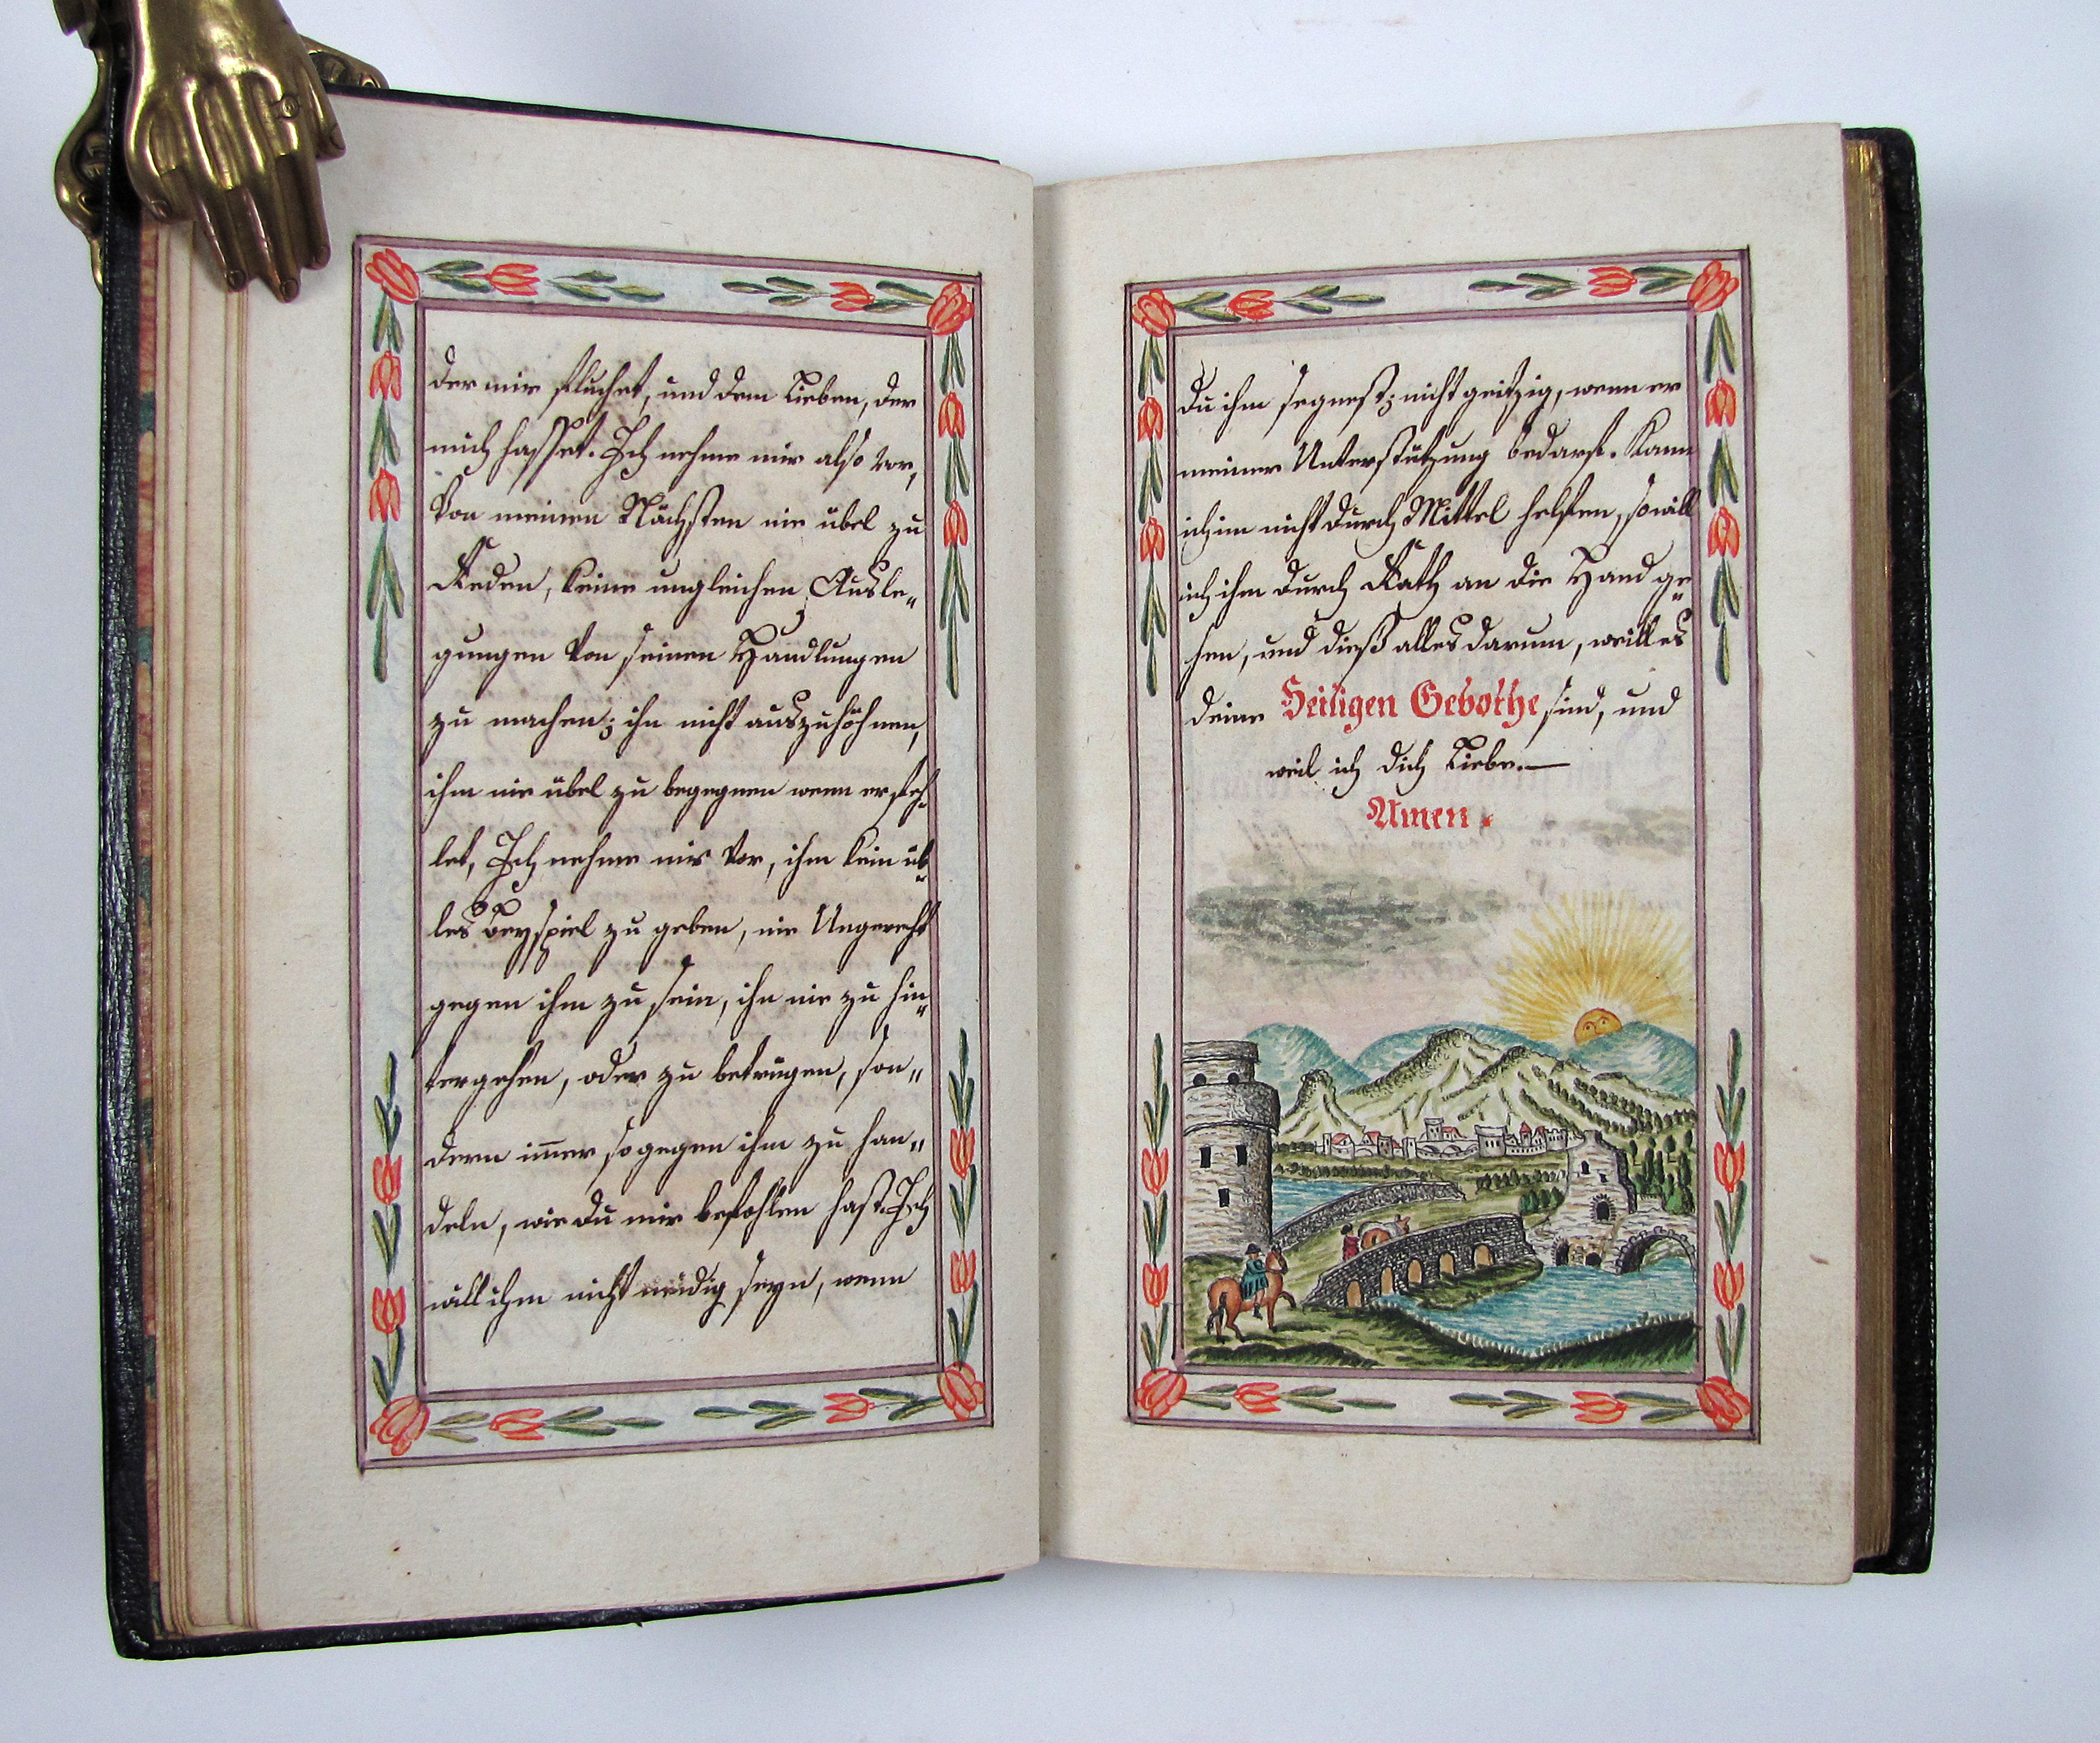 der mir fluchet, und dem Lieben, der
mich hasset. Ich nehme mir also vor,
Von meinen Nächsten nie übel zu
Reden, keine ungleichen Ausle„
gungen Von seinen Handlungen
zu machen; ihn nicht auszuhöhnen,
ihm nie übel zu begegnen wenn er feh„
let, Ich nehme mir Vor, ihm kein üb„
les Beyspiel zu geben, nie Ungerecht
gegen ihm zu sein, ihn nie zu hin„
tergehen, oder zu betrügen, son„
dern im̅er so gegen ihm zu han„
deln, wie du mir befohlen hast. Ich
will ihm nicht neidig seyn, wenn
du ihm segnest; nicht geitzig, wenn er
meiner Unterstützung bedarf. Kann
ich im nicht durch Mittel helfen, so will
ich ihm durch Rath an die Hand ge„
hen, und dieß alles darum, weill es
deine Heiligen Gebothe sind, und
weil ich dich Liebe.—
Amen.